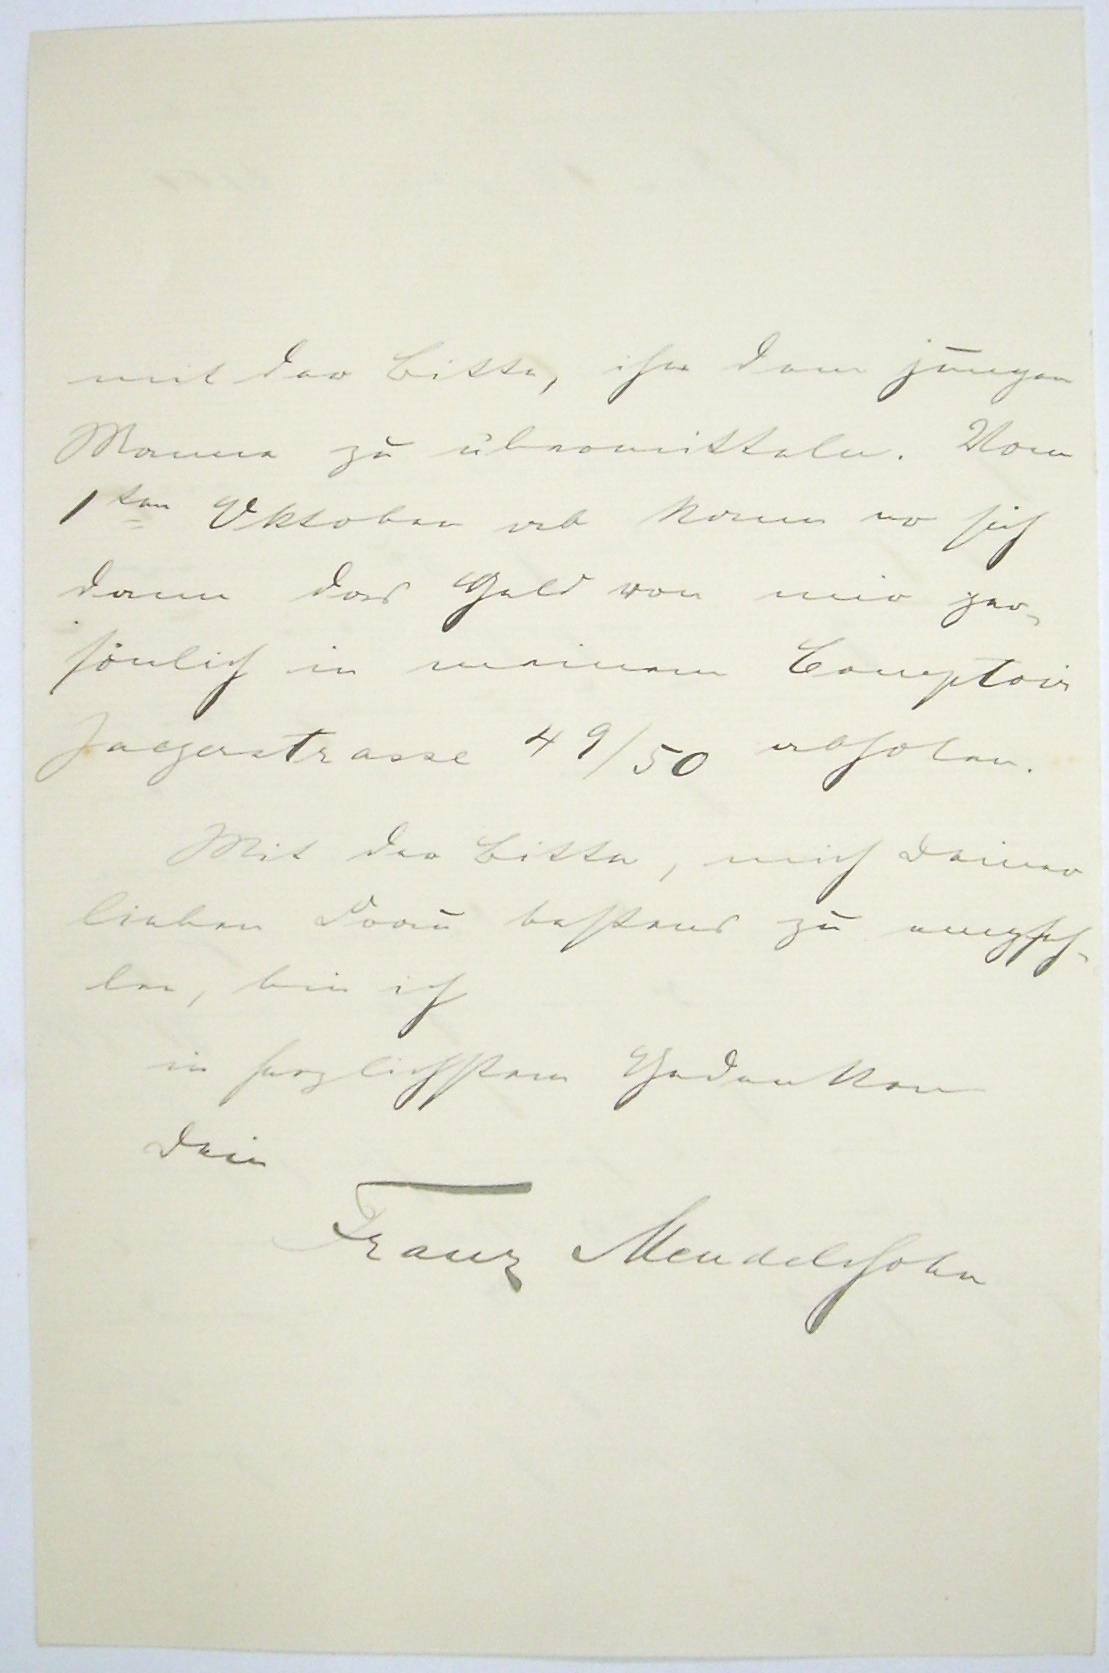 mit der Bitte, ihn dem jungen
Manne zu übermitteln. Vom
1ten Oktober ab kann er sich
dann das Geld von mir per-
sönlich in meinem Comptoir
Jaegerstrasse 49/50 abholen.
Mit der Bitte, mich Deiner
lieben Frau bestens zu empfeh-
len, bin ich
in herzlichstem Gedenken
Dein
Franz Mendelssohn